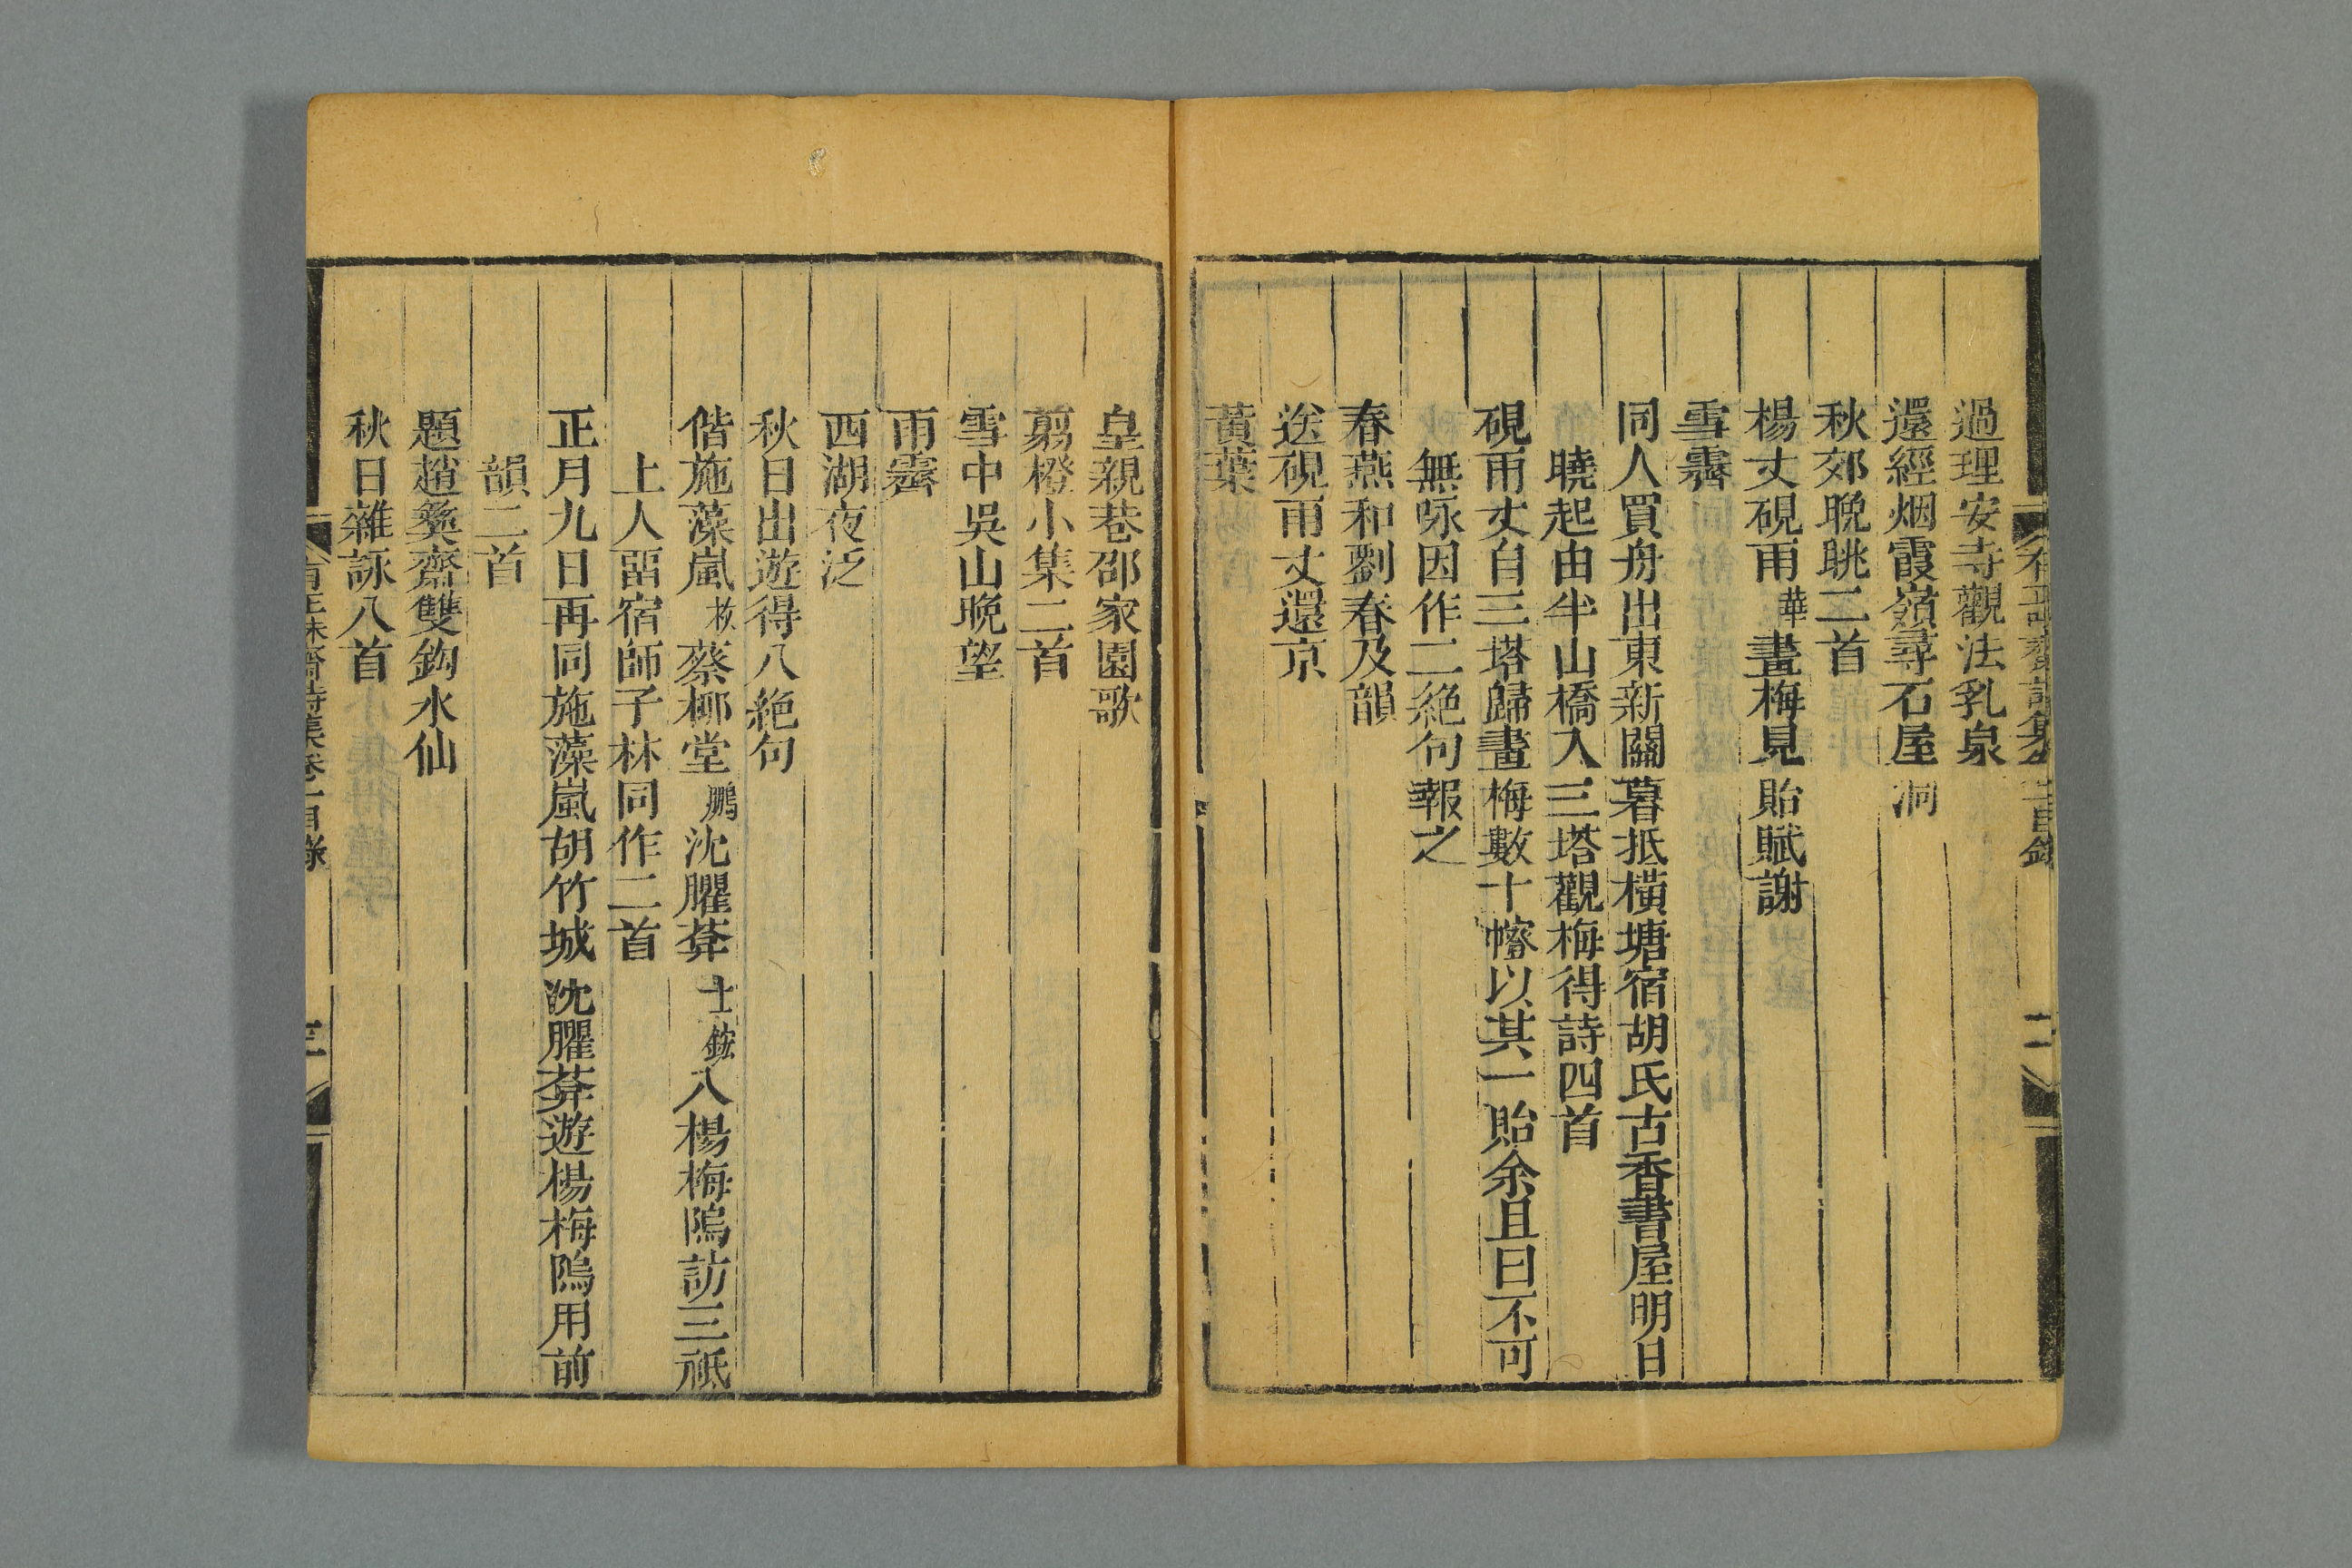 過理安寺觀法乳泉
還經烟霞嶺尋石屋洞
秋郊晚眺二首
楊丈硯雨華畫梅見貽賦謝
雪霽
同人買舟出東新關暮抵橫塘宿胡氏古香書屋明日
曉起由半山橋入三塔觀梅得詩四首
硯雨丈自三塔歸畫梅數十幢以其一貽余且曰不可
無咏因作二絕句報之
春燕和劉春及韻
送硯雨丈還京
黃葉
皇親巷邵家園歌
剪橙小集二首
雪中吳山晚望
雨霽
西湖夜泛
秋日出遊得八絕句
偕施藻嵐枚蔡柳堂鵬沈臞莽士鋐入楊梅隝訪三祇
上人畱宿師子林同作二首
正月九日再同施藻嵐胡竹城沈臞莽遊楊梅隝用前
韻二首
題趙彝齋雙鈎水仙
秋日雜詠八首
有正味齋詩集卷一目錄
三